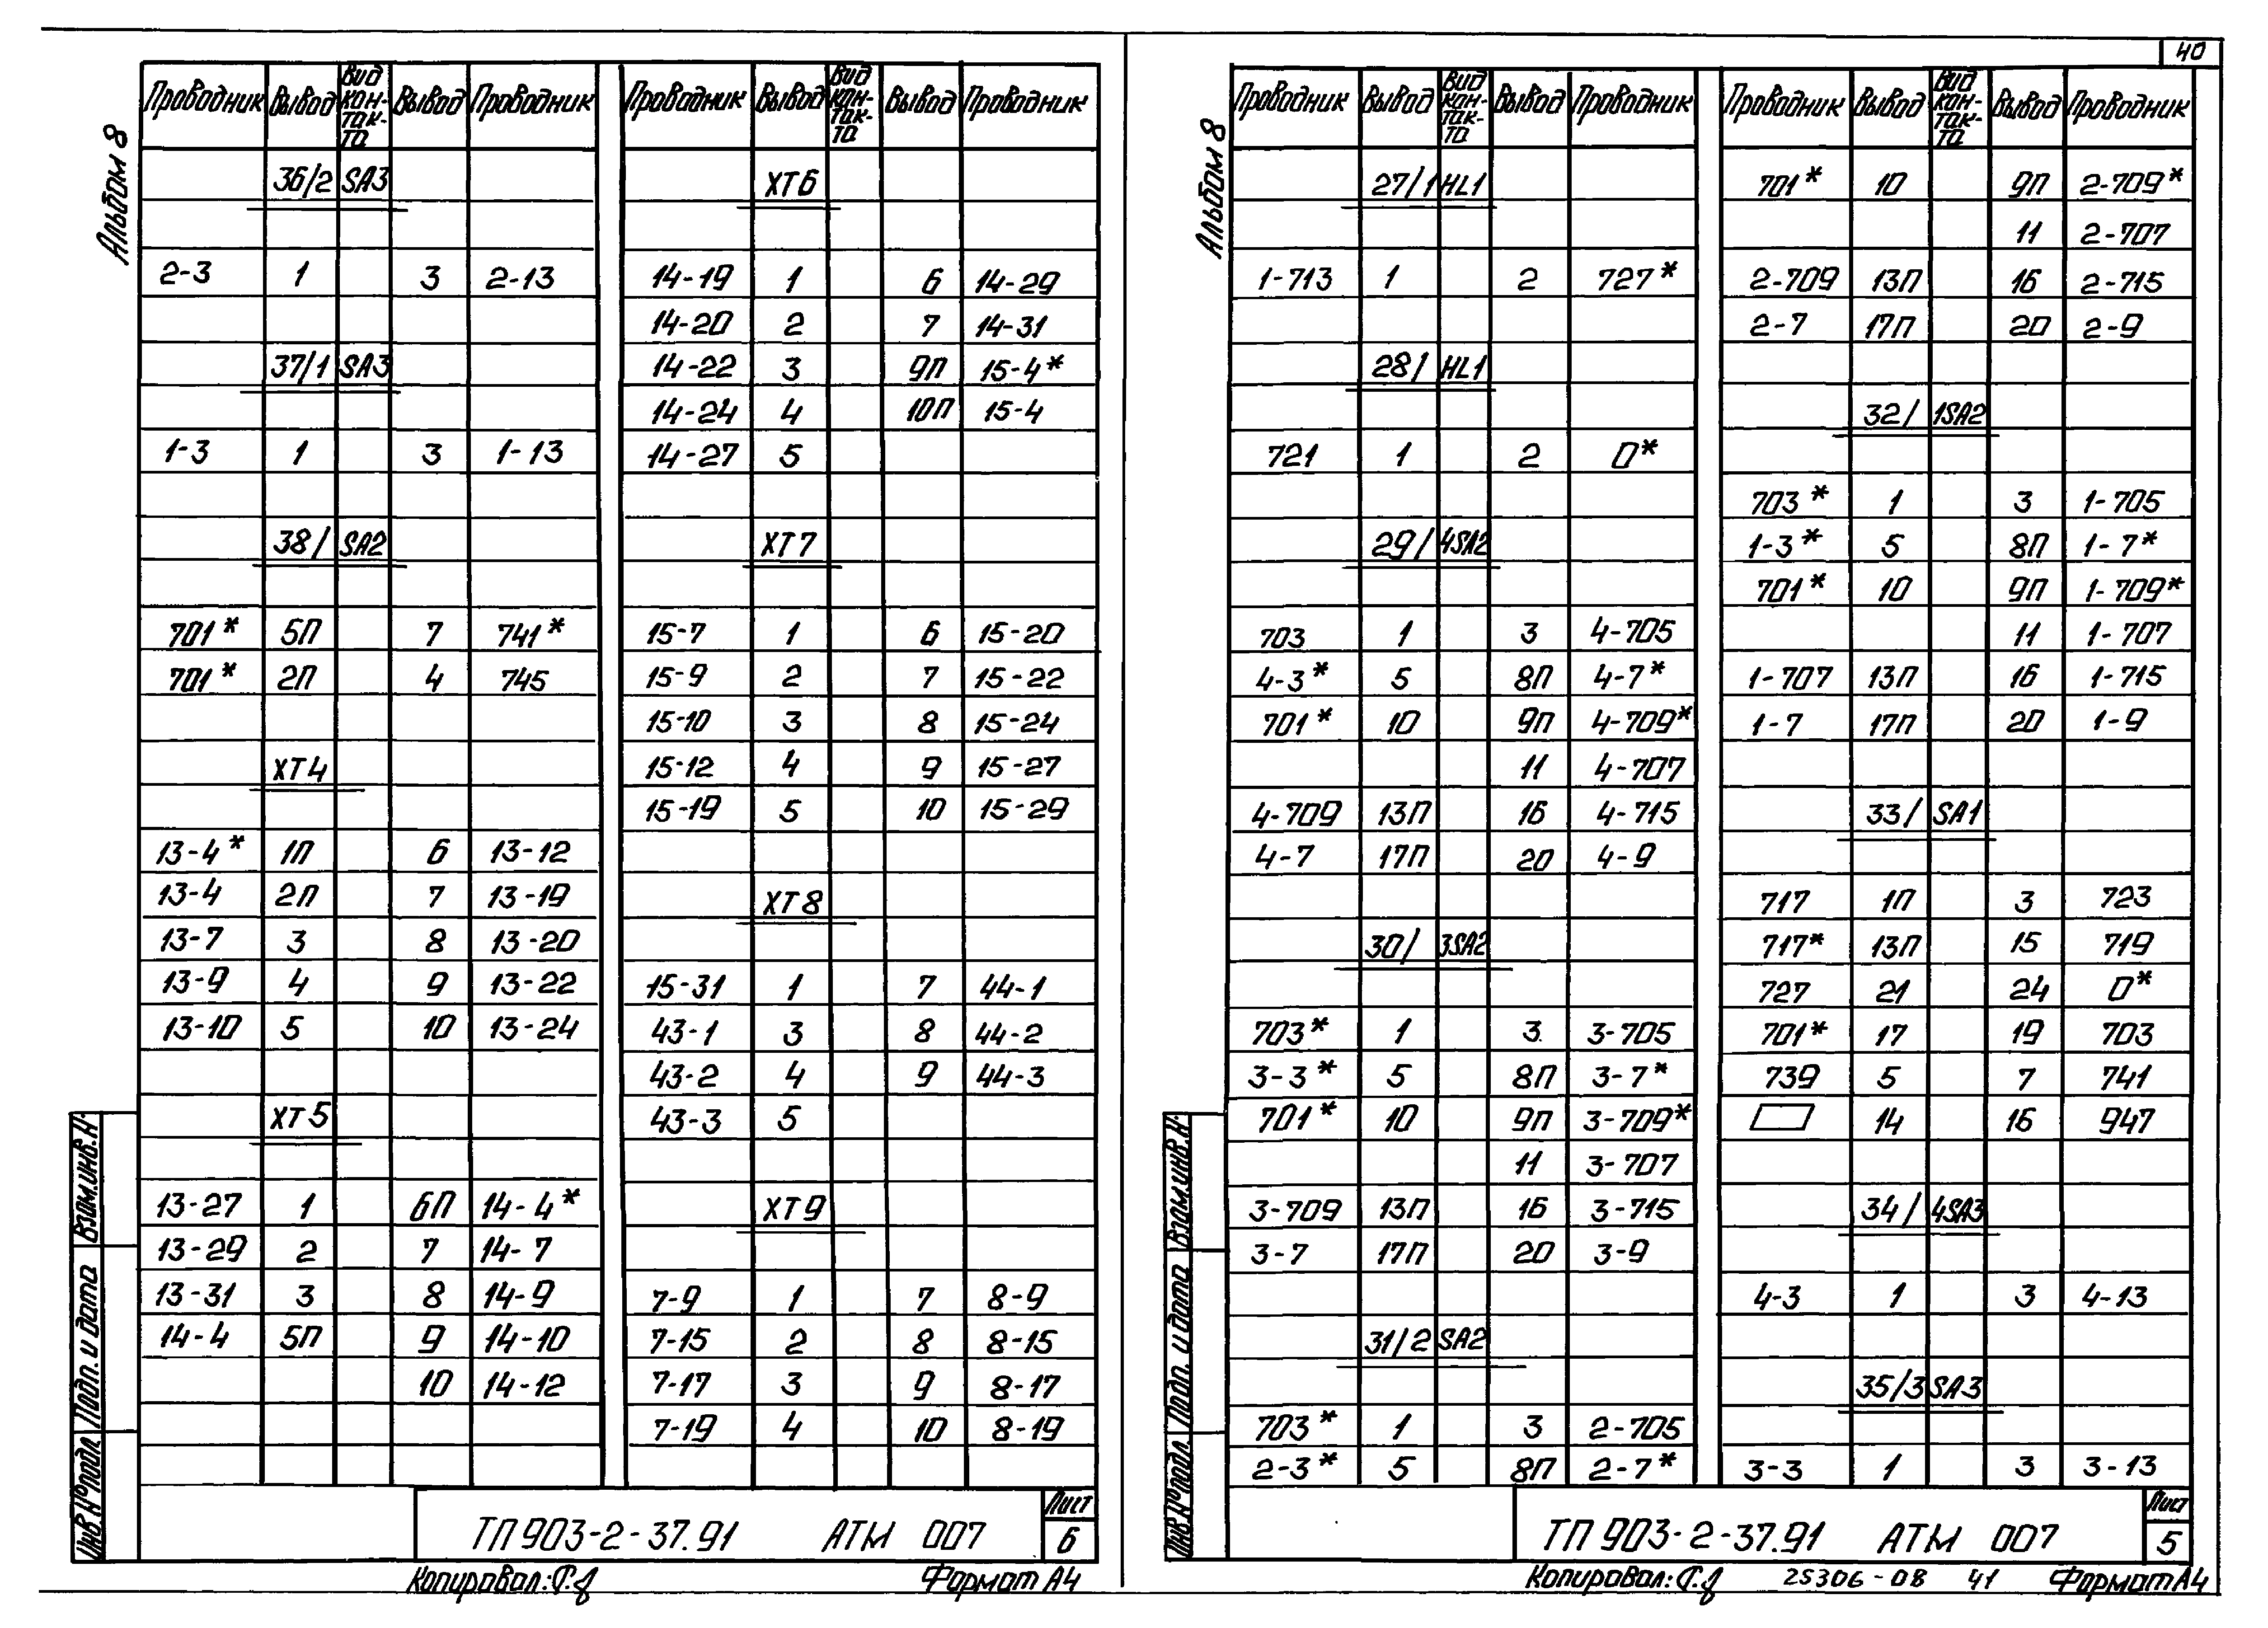 40
Альбом 8
Проводник Вывод Вид кон-так-та Вывод Проводник
36/2 SA3
2-3 1 3 2-13
37/1 SA3
1-3 1 3 1-13
38/ SA2
701* 5П 7 741*
701* 2П 4 745
XT4
13-4* 1П 6 13-12
13-4 2П 7 13-19
13-7 3 8 13-20
13-9 4 9 13-22
13-10 5 10 13-24
XT5
13-27 1 6П 14-4*
13-29 2 7 14-7
13-31 3 8 14-9
14-4 5П 9 14-10
10 14-12
Проводник Вывод Вид кон-так-та Вывод Проводник
XT6
14-19 1 6 14-29
14-20 2 7 14-31
14-22 3 9П 15-4*
14-24 4 10П 15-4
14-27 5
XT7
15-7 1 6 15-20
15-9 2 7 15-22
15-10 3 8 15-24
15-12 4 9 15-27
15-19 5 10 15-29
XT8
15-31 1 7 44-1
43-1 3 8 44-2
43-2 4 9 44-3
43-3 5
XT9
7-9 1 7 8-9
7-15 2 8 8-15
7-17 3 9 8-17
7-19 4 10 8-19
Взам.инв.N
Подп. и дата
Инв.N°подл
ТП 903-2-37.91 АТМ 007
Лист
6
Копировал:
Формат А4
Альбом 8
Проводник Вывод Вид кон-так-та Вывод Проводник
27/1 HL1
1-713 1 2 727*
28/ HL1
721 1 2 0*
29/ 4SA2
703 1 3 4-705
4-3* 5 8П 4-7*
701* 10 9П 4-709*
11 4-707
4-709 13П 16 4-715
4-7 17П 20 4-9
30/ 3SA2
703* 1 3 3-705
3-3* 5 8П 3-7*
701* 10 9П 3-709*
11 3-707
3-709 13П 16 3-715
3-7 17П 20 3-9
31/2 SA2
703* 1 3 2-705
2-3* 5 8П 2-7*
Проводник Вывод Вид кон-так-та Вывод Проводник
701* 10 9П 2-709*
11 2-707
2-709 13П 16 2-715
2-7 17П 20 2-9
32/ 1SA2
703* 1 3 1-705
1-3* 5 8П 1-7*
701* 10 9П 1-709*
11 1-707
1-707 13П 16 1-715
1-7 17П 20 1-9
33/ SA1
717 1П 3 723
717* 13П 15 719
727 21 24 0*
701* 17 19 703
739 5 7 741
14 16 947
34/ 4SA3
4-3 1 3 4-13
35/3 SA3
3-3 1 3 3-13
Взам.инв.N
Подп. и дата
Инв.N°подл.
ТП 903-2-37.91 АТМ 007
Лист
5
Копировал:
25306-08 41
Формат А4